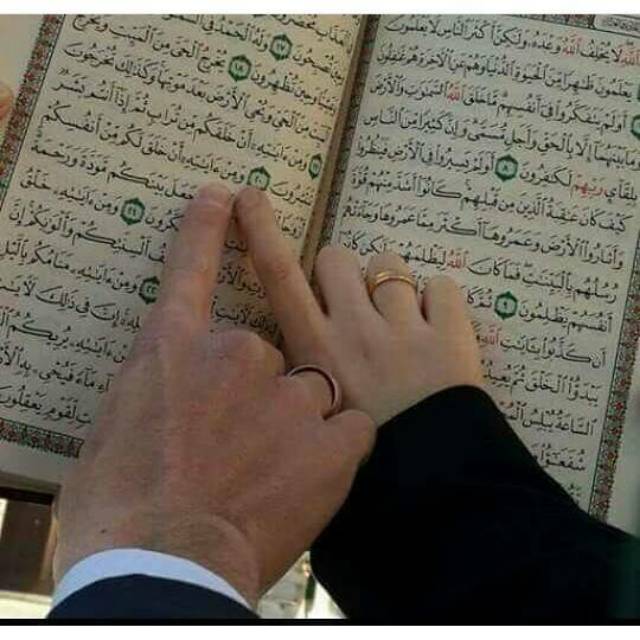 ٱللَّهِ لَا يُخْلِفُ ٱللَّهُ وَعْدَهُ وَلَٰكِنَّ أَكْثَرَ ٱلنَّاسِ لَا يَعْلَمُونَ
يَعْلَمُونَ ظَٰهِرًا مِّنَ ٱلْحَيَوٰةِ ٱلدُّنْيَا وَهُمْ عَنِ ٱلْءَاخِرَةِ هُمْ غَٰفِلُونَ
أَوَلَمْ يَتَفَكَّرُوا۟ فِىٓ أَنفُسِهِم مَّا خَلَقَ ٱللَّهُ ٱلسَّمَٰوَٰتِ وَٱلْأَرْضَ
وَمَا بَيْنَهُمَآ إِلَّا بِٱلْحَقِّ وَأَجَلٍ مُّسَمًّى وَإِنَّ كَثِيرًا مِّنَ ٱلنَّاسِ
بِلِقَآئِ رَبِّهِمْ لَكَٰفِرُونَ ٨ أَوَلَمْ يَسِيرُوا۟ فِى ٱلْأَرْضِ فَيَنظُرُوا۟
كَيْفَ كَانَ عَٰقِبَةُ ٱلَّذِينَ مِن قَبْلِهِمْ كَانُوٓا۟ أَشَدَّ مِنْهُمْ قُوَّةً
وَأَثَارُوا۟ ٱلْأَرْضَ وَعَمَرُوهَآ أَكْثَرَ مِمَّا عَمَرُوهَا وَجَآءَتْهُمْ
رُسُلُهُم بِٱلْبَيِّنَٰتِ فَمَا كَانَ ٱللَّهُ لِيَظْلِمَهُمْ وَلَٰكِن كَانُوٓا۟
أَنفُسَهُمْ يَظْلِمُونَ ٩ ثُمَّ
أَن كَذَّبُوا۟ بِـَٔايَٰتِ ٱللَّهِ
يَبْدَؤُا۟ ٱلْخَلْقَ ثُمَّ يُعِيدُهُ
ٱلسَّاعَةُ يُبْلِسُ
شُفَعَٰٓؤُا۟
تُصْبِحُونَ ١٧ وَلَهُ ٱلْحَمْدُ فِى
وَعَشِيًّا وَحِينَ تُظْهِرُونَ ١٨ يُخْرِجُ ٱلْحَىَّ مِنَ ٱلْمَيِّتِ وَيُخْرِجُ
ٱلْمَيِّتَ مِنَ ٱلْحَىِّ وَيُحْىِ ٱلْأَرْضَ بَعْدَ مَوْتِهَا وَكَذَٰلِكَ تُخْرَجُونَ
١٩ وَمِنْ ءَايَٰتِهِۦٓ أَنْ خَلَقَكُم مِّن تُرَابٍ ثُمَّ إِذَآ أَنتُم بَشَرٌ
تَنتَشِرُونَ ٢٠ وَمِنْ ءَايَٰتِهِۦٓ أَنْ خَلَقَ لَكُم مِّنْ أَنفُسِكُمْ
وَجَعَلَ بَيْنَكُم مَّوَدَّةً وَرَحْمَةً
٢١ وَمِنْ ءَايَٰتِهِۦ خَلْقُ
أَلْسِنَتِكُمْ وَأَلْوَٰنِكُمْ إِنَّ
٢٢ وَمِنْ ءَايَٰتِهِۦ مَنَامُكُم بِٱلَّيْلِ
إِنَّ فِى ذَٰلِكَ
ءَايَٰتِهِۦ يُرِيكُمُ
مَآءً فَيُحْىِۦ بِهِ
لِّقَوْمٍ يَعْقِلُونَ